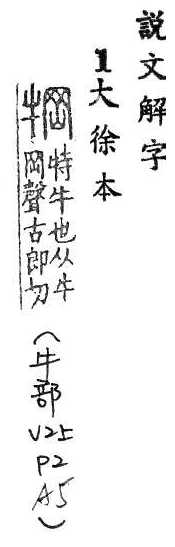 説文解字
1大徐本
犅 特牛也从牛
岡聲古郎切
(牛部 V2上 P2 A5)